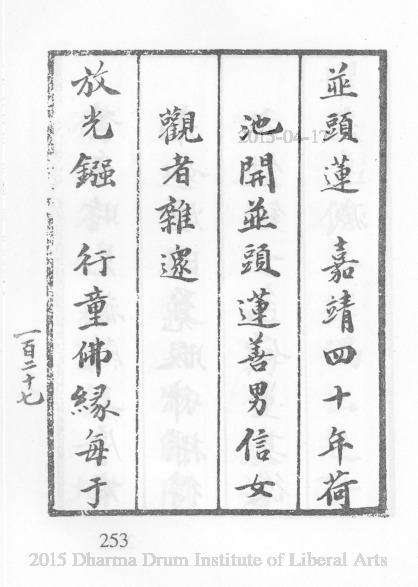 並頭蓮　嘉靖四十年荷
池開並頭蓮善男信女
觀者雜遝
放光鏹　行童佛緣每于
一百二十七
253
2015-04-17
2015 Dharma Drum Institute of Liberal Arts